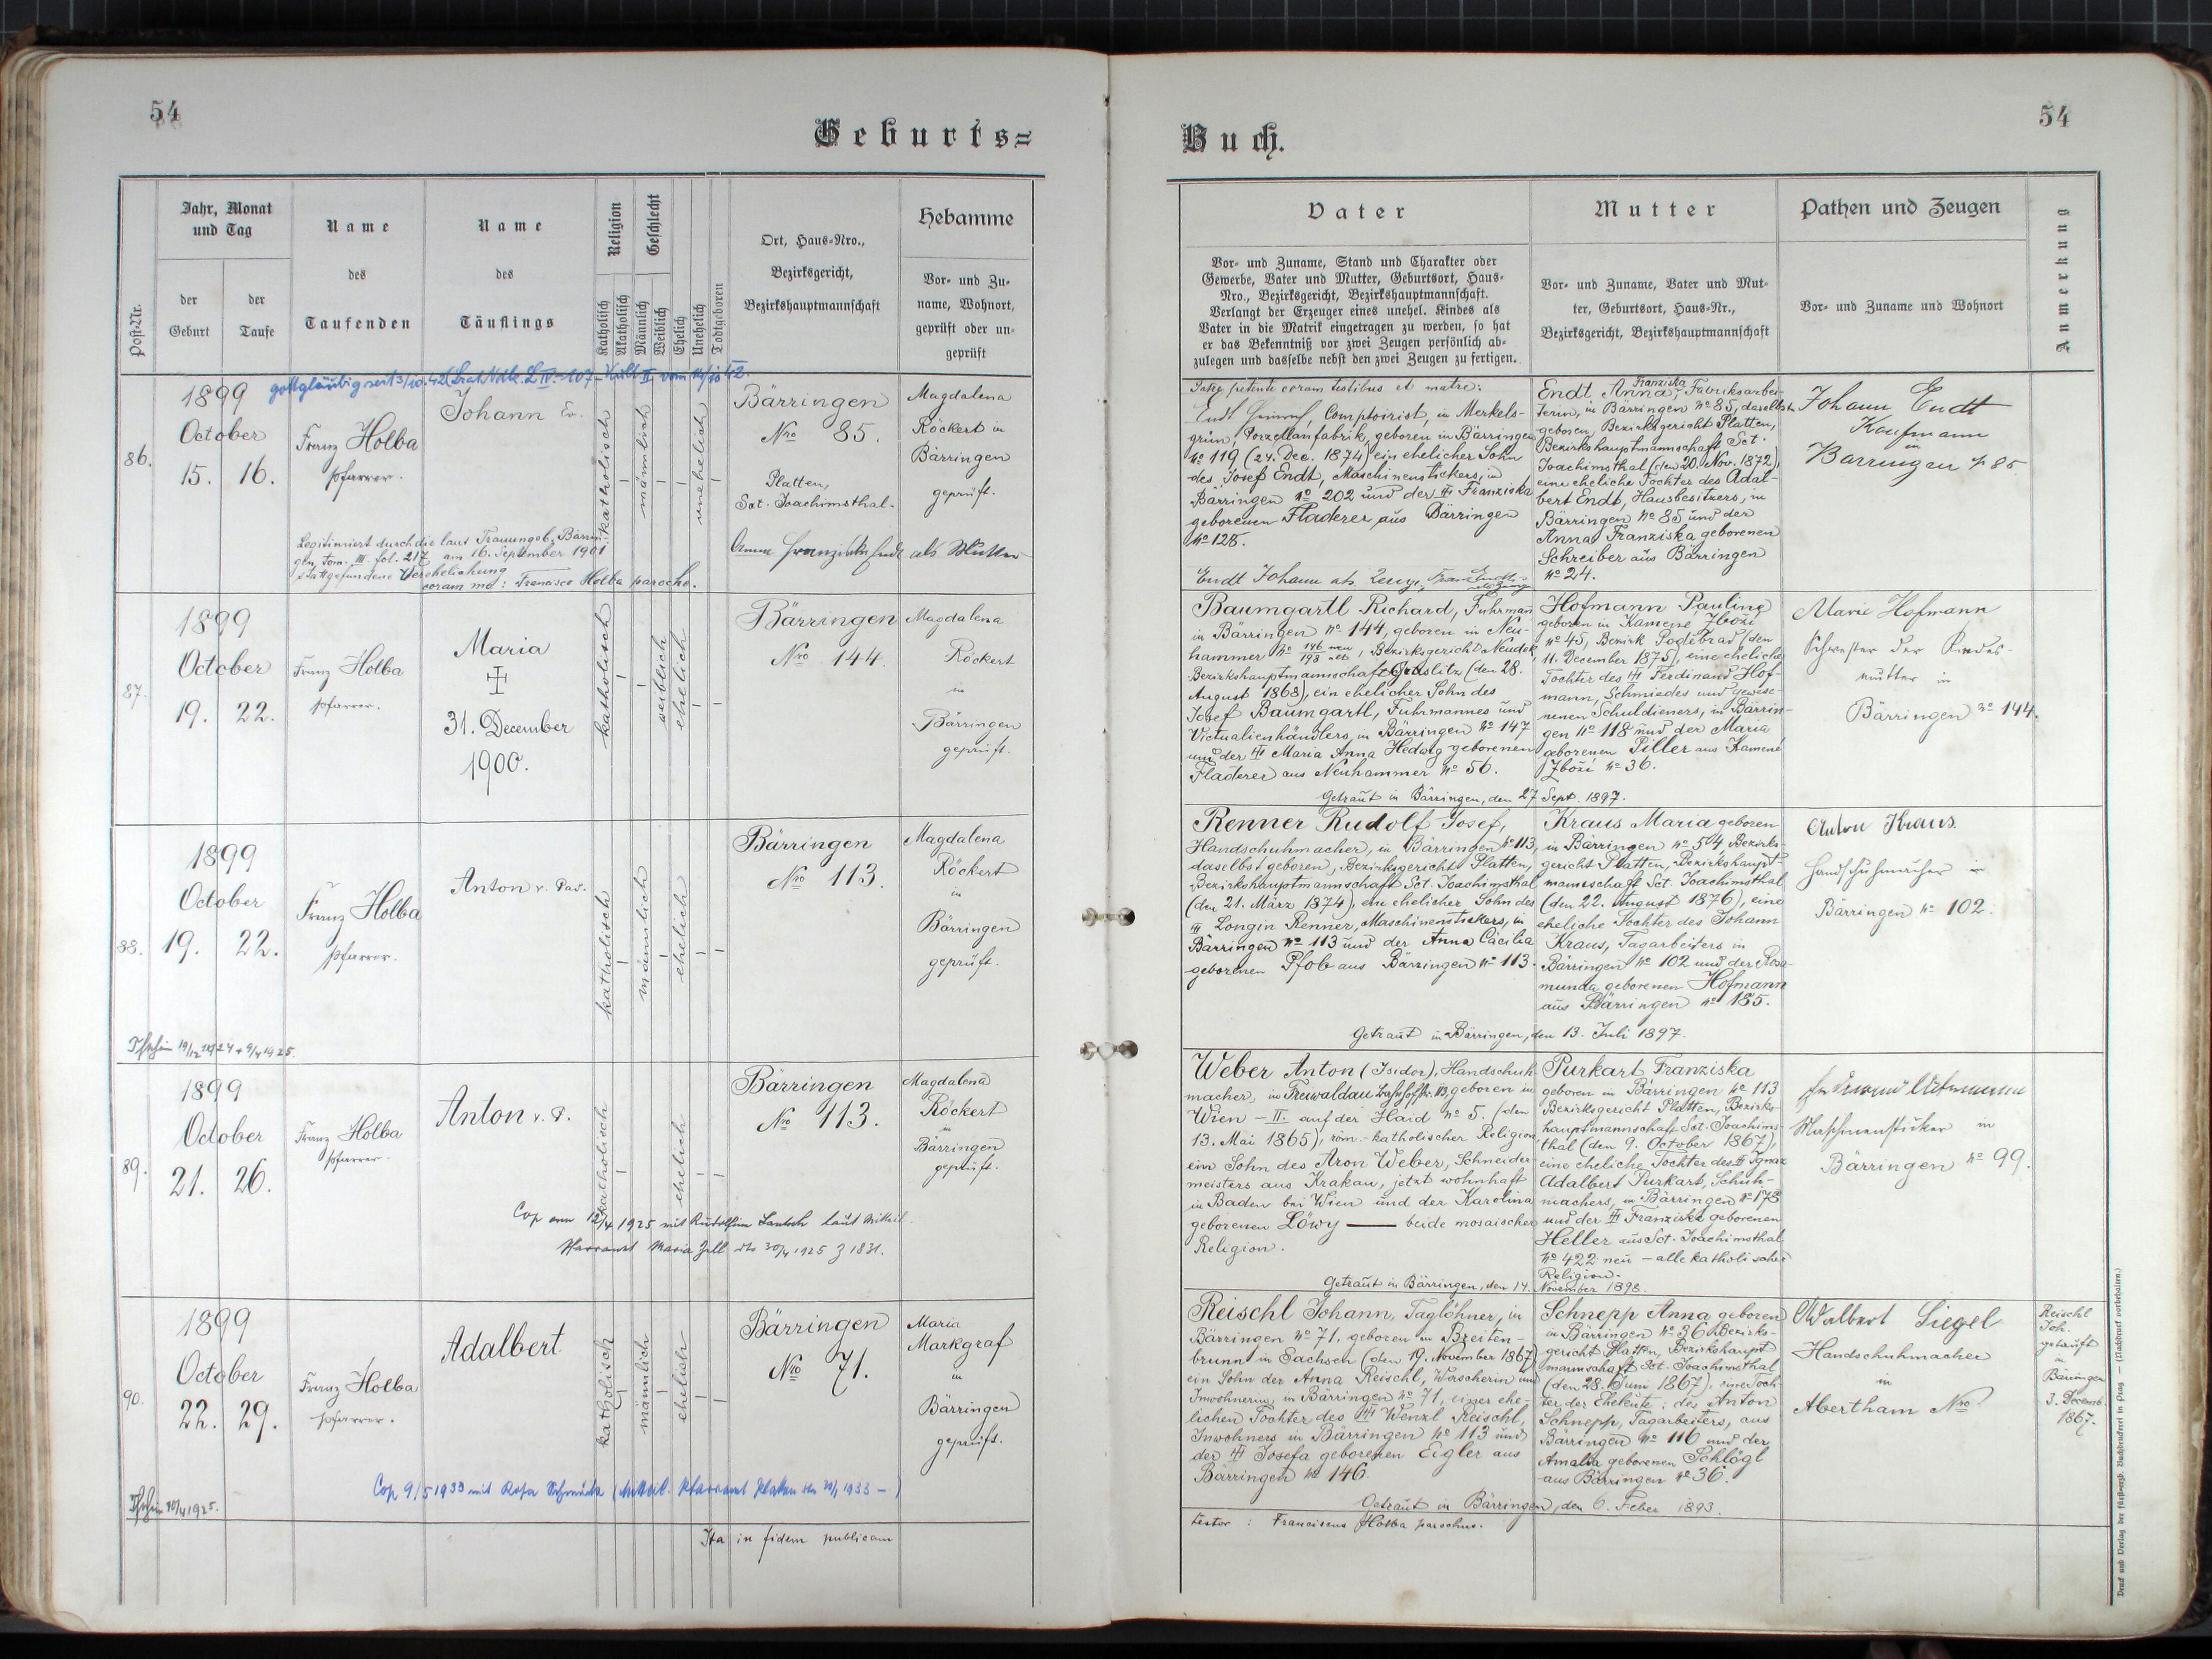 54
54
Geburts=
Buch.
Post-Nr.
Jahr, Monat
und Tag
der
Geburt
der
Taufe
Name
des
Taufenden
Name
des
Täuflings
Religion
Katholisch
Akatholisch
Geschlecht
Männlich
Weiblich
Ehelich
Unehelich
Todtgeboren
Ort, Haus-Nro.,
Bezirksgericht,
Bezirkshauptmannschaft
Hebamme
Vor- und Zu-
name, Wohnort,
geprüft oder un-
geprüft
Vater
Vor- und Zuname, Stand und Charakter oder
Gewerbe, Vater und Mutter, Geburtsort, Haus-
Nro., Bezirksgericht, Bezirkshauptmannschaft.
Verlangt der Erzeuger eines unehel. Kindes als
Vater in die Matrik eingetragen zu werden, so hat
er das Bekenntniß vor zwei Zeugen persönlich ab-
zulegen und dasselbe nebst den zwei Zeugen zu fertigen.
Mutter
Vor- und Zuname, Vater und Mut-
ter, Geburtsort, Haus-Nr.,
Bezirksgericht, Bezirkshauptmannschaft
Pathen und Zeugen
Vor- und Zuname und Wohnort
Anmerkung
gottgläubig seit 3/10. 42
86.
1899
October
15. 16.
Franz Holba
Pfarrer.
Johann Ev.
katholisch
männlich
unehelich
Bärringen
Nro 85.
Platten,
Sct. Joachimsthal.
Magdalena
Röckert in
Bärringen
geprüft.
Legitimiert durch die laut Trauungsb. Bärrin-
gen, tom. III. fol. 217 am 16. September 1901
stattgefundene Verehelichung
coram me: Francisco Holba parocho.
Anna Franziska Endt als Mutter
petente coram testibus et matre:
Endt Heinrich, Comptoirist, in Merkels-
grün, Porzellanfabrik, geboren in Bärringen
No 119 (24. Dec. 1874) ein ehelicher Sohn
des Josef Endt, Maschinenstickers, in
Bärringen No 202 und der Franziska
geborenen Fladerer aus Bärringen
No 128.
Endt Johann als Zeuge,
Endt, Anna Franziska, Fabriksarbei-
terin, in Bärringen No 85, daselbst
geboren, Bezirksgericht Platten,
Bezirkshauptmannschaft Sct.
Joachimsthal (den 20. Nov. 1872),
eine eheliche Tochter des Adal-
bert Endt, Hausbesitzers, in
Bärringen No 85 und der
Anna Franziska geborenen
Schreiber aus Bärringen
No 24.
Johann Endt
Kaufmann
in
Bärringen No 85
87.
1899
October
19. 22.
Franz Holba
Pfarrer.
Maria
31. December
1900.
katholisch
weiblich
ehelich
Bärringen
Nro 144.
Magdalena
Röckert
in
Bärringen
geprüft.
Baumgartl Richard, Fuhrman
in Bärringen No 144, geboren in Neu-
hammer No 146 neu 198 alt, Bezirksgericht Neudek,
Bezirkshauptmannschaft Graslitz (den 28.
August 1868), ein ehelicher Sohn des
Josef Baumgartl, Fuhrmannes und
Victualienhändlers, in Bärringen No 147
und der Maria Anna Hedwig geborenen
Fladerer aus Neuhammer No 56.
Hofmann Pauline
geboren in Kamené Zboži
No 45, Bezirk Poděbrad (den
11. December 1875), eine eheliche
Tochter des Ferdinand Hof-
mann, Schmiedes und gewese-
nenen Schuldieners, in Bärrin-
gen No 118 und der Maria
geborenen Piller aus Kamené
Zboži No 36.
Getraut in Bärringen, den 27 Sept. 1897.
Marie Hofmann
Schwester der Kindes-
mutter in
Bärringen No 144.
88.
1899
October
19. 22.
Franz Holba
Pfarrer.
Anton v. Pad.
katholisch
männlich
ehelich
Bärringen
Nro 113.
Magdalena
Röckert
in
Bärringen
geprüft.
Renner Rudolf Josef,
Handschuhmacher, in Bärringen No 113,
daselbst geboren, Bezirksgericht Platten,
Bezirkshauptmannschaft Sct. Joachimsthal
(den 21. März 1874), ein ehelicher Sohn des
Longin Renner, Maschinenstickers, in
Bärringen No 113 und der Anna Cäcilia
geborenen Pfob aus Bärringen No 113.
Kraus Maria geboren
in Bärringen No 54, Bezirks-
gericht Platten, Bezirkshaupt-
mannschaft Sct. Joachimsthal
(den 22. August 1876), eine
eheliche Tochter des Johann
Kraus, Tagarbeiters in
Bärringen No 102 und der Rosa-
munda geborenen Hofmann
aus Bärringen No 185.
Getraut in Bärringen, den 13. Juli 1897.
Anton Kraus.
Handschuhmacher in
Bärringen No 102.
89.
1899
October
21. 26.
Franz Holba
Pfarrer.
Anton v. P.
katholisch
ehelich
Bärringen
Nro 113.
Magdalena
Röckert
in
Bärringen
geprüft.
Cop am 12/4 1925 mit laut Mitteil.
Pfarramt Maria Zell dto 30/4 1925 Z 1831.
Weber Anton (Isidor), Handschuh-
macher, in Freiwaldau geboren in
Wien – II. auf der Haid No 5. (den
13. Mai 1865), röm.-katholischer Religion,
ein Sohn des Aron Weber, Schneider-
meisters aus Krakau, jetzt wohnhaft
in Baden bei Wien und der Karolina
geborenen Löwy — beide mosaischer
Religion.
Purkart Franziska
geboren in Bärringen No 113
Bezirksgericht Platten, Bezirks-
hauptmannschaft Sct. Joachims-
thal (den 9. October 1867),
eine eheliche Tochter des Ignaz
Adalbert Purkart, Schuh-
machers, in Bärringen No 178
und der Franziska geborenen
Heller aus Sct. Joachimsthal
No 422 neu – alle katholischer
Religion.
Getraut in Bärringen, den 14. November 1898.
Maschinensticker in
Bärringen No 99.
90.
1899
October
22. 29.
Franz Holba
Pfarrer.
Adalbert
katholisch
männlich
ehelich
Bärringen
Nro 71.
Maria
Markgraf
in
Bärringen
geprüft.
Cop 9/5 1933 mit Rosa
Reischl Johann, Taglöhner, in
Bärringen No 71, geboren in Breiten-
brunn in Sachsen (den 19. November 1867)
ein Sohn der Anna Reischl, Wäscherin und
Inwohnerin, in Bärringen No 71, einer ehe-
lichen Tochter des Wenzl Reischl,
Inwohners in Bärringen No 113 und
der Josefa geborenen Eigler aus
Bärringen No 146.
Schnepp Anna geboren
in Bärringen No 36 Bezirks-
gericht Platten, Bezirkshaupt-
mannschaft Sct. Joachimsthal
(den 28. Juni 1867), eine Toch-
ter der Eheleute: des Anton
Schnepp, Tagarbeiters, aus
Bärringen No 116 und der
Amalia geborenen Schlögl
aus Bärringen No 36.
Getraut in Bärringen, den 6. Feber 1893.
Adalbert Siegel
Handschuhmacher
in
Abertham Nro
Reischl
Joh.
getauft
in
Bärringen
3. Decemb.
1867.
Ita in fidem publicam
testor : Franciscus Holba parochus.
Druck und Verlag der fürsterzb. Buchdruckerei in Prag — (Nachdruck vorbehalten.)